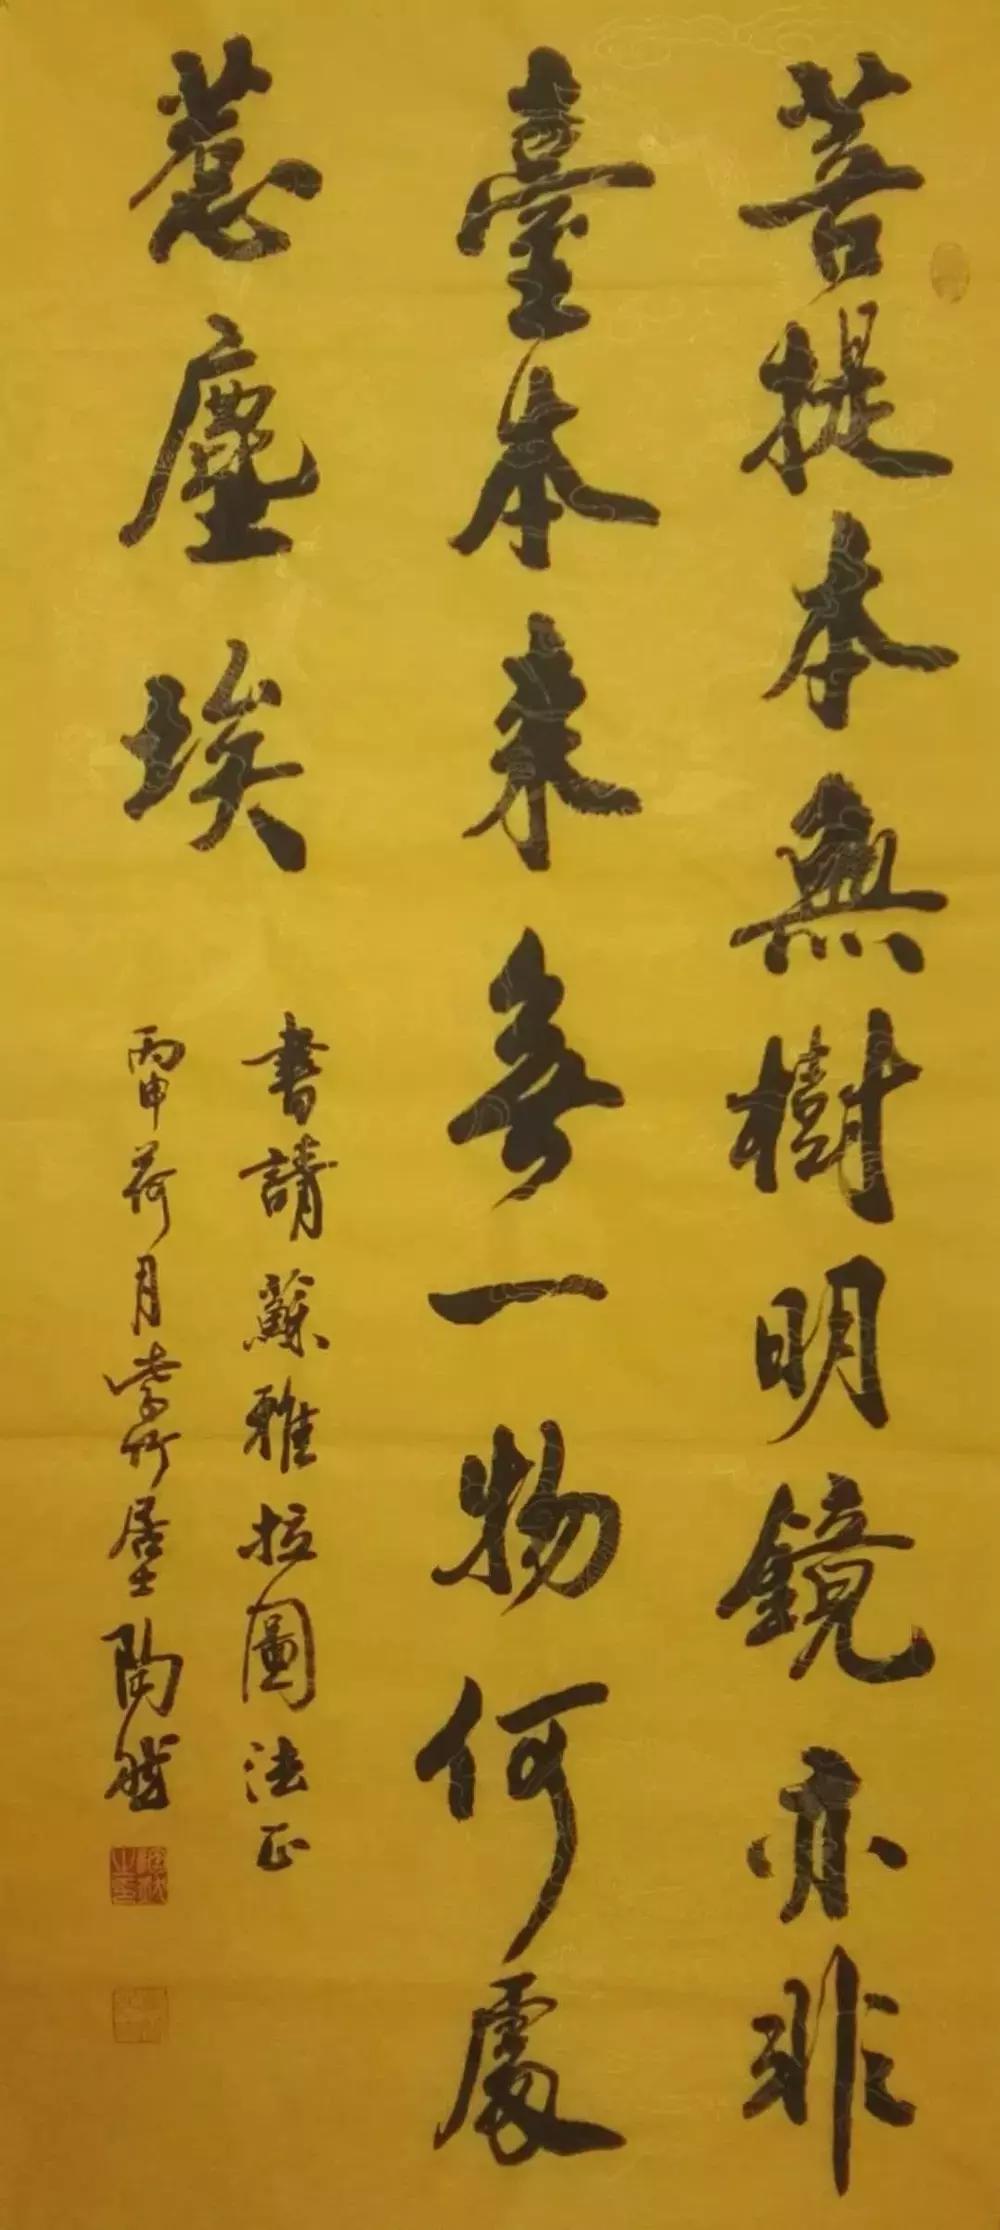 菩提本無樹明鏡亦非
臺本來無一物何處
惹塵埃
書請蘇雅拉圖法正
丙申荷月紫竹居士陶然